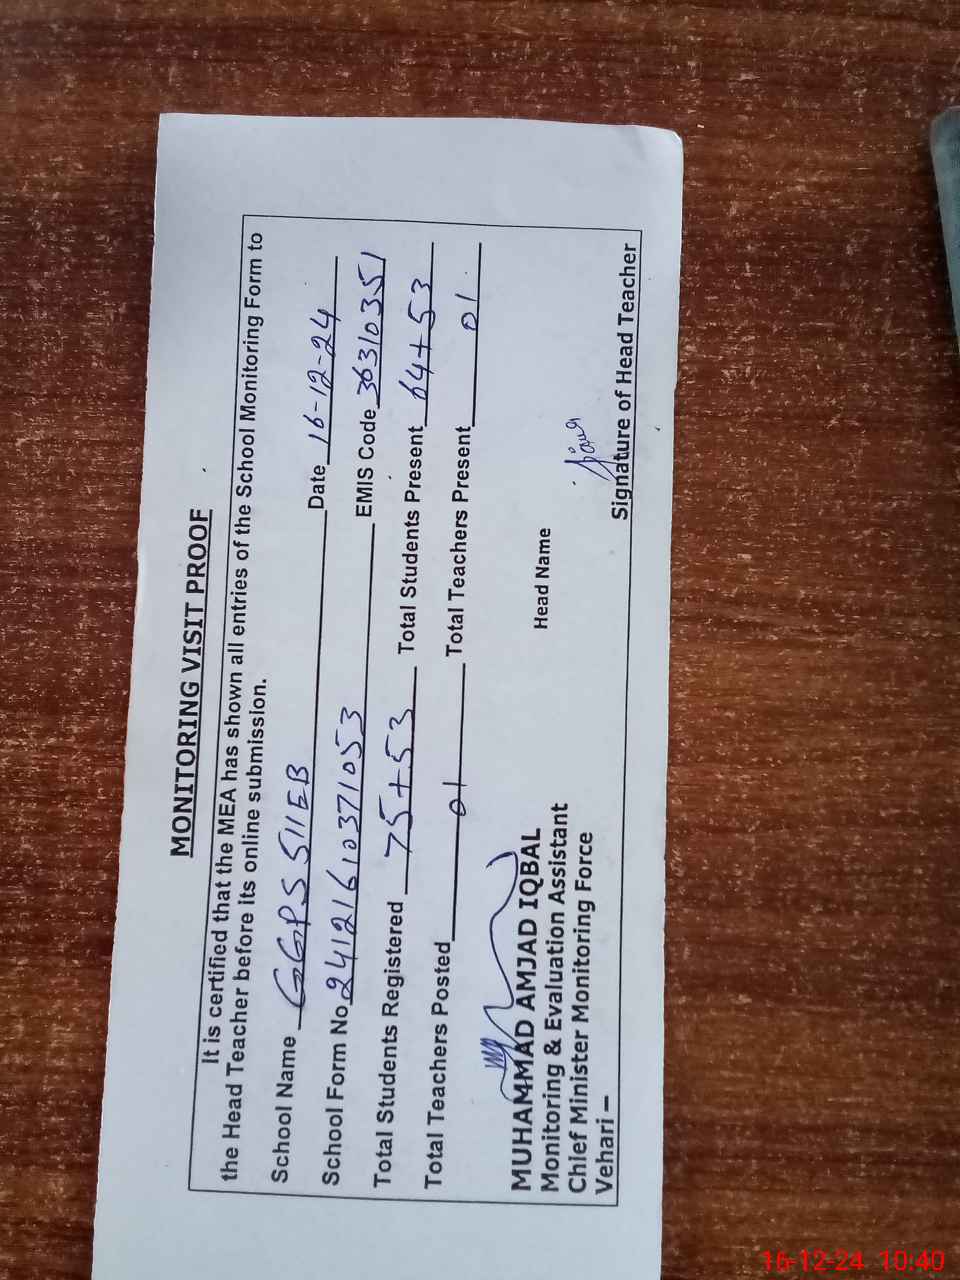 MONITORING VISIT PROOF
It is certified that the MEA has shown all entries of the School Monitoring Form to
the Head Teacher before its online submission.
School Name GGPS 511EB Date 16-12-24
School Form No 2412161037 1053 EMIS Code 36310351
Total Students Registered 75+53 Total Students Present 64+53
Total Teachers Posted 01 Total Teachers Present 01
MUHAMMAD AMJAD IQBAL
Monitoring & Evaluation Assistant Head Name
Chief Minister Monitoring Force
Vehari –
Signature of Head Teacher
16-12-24 10:40